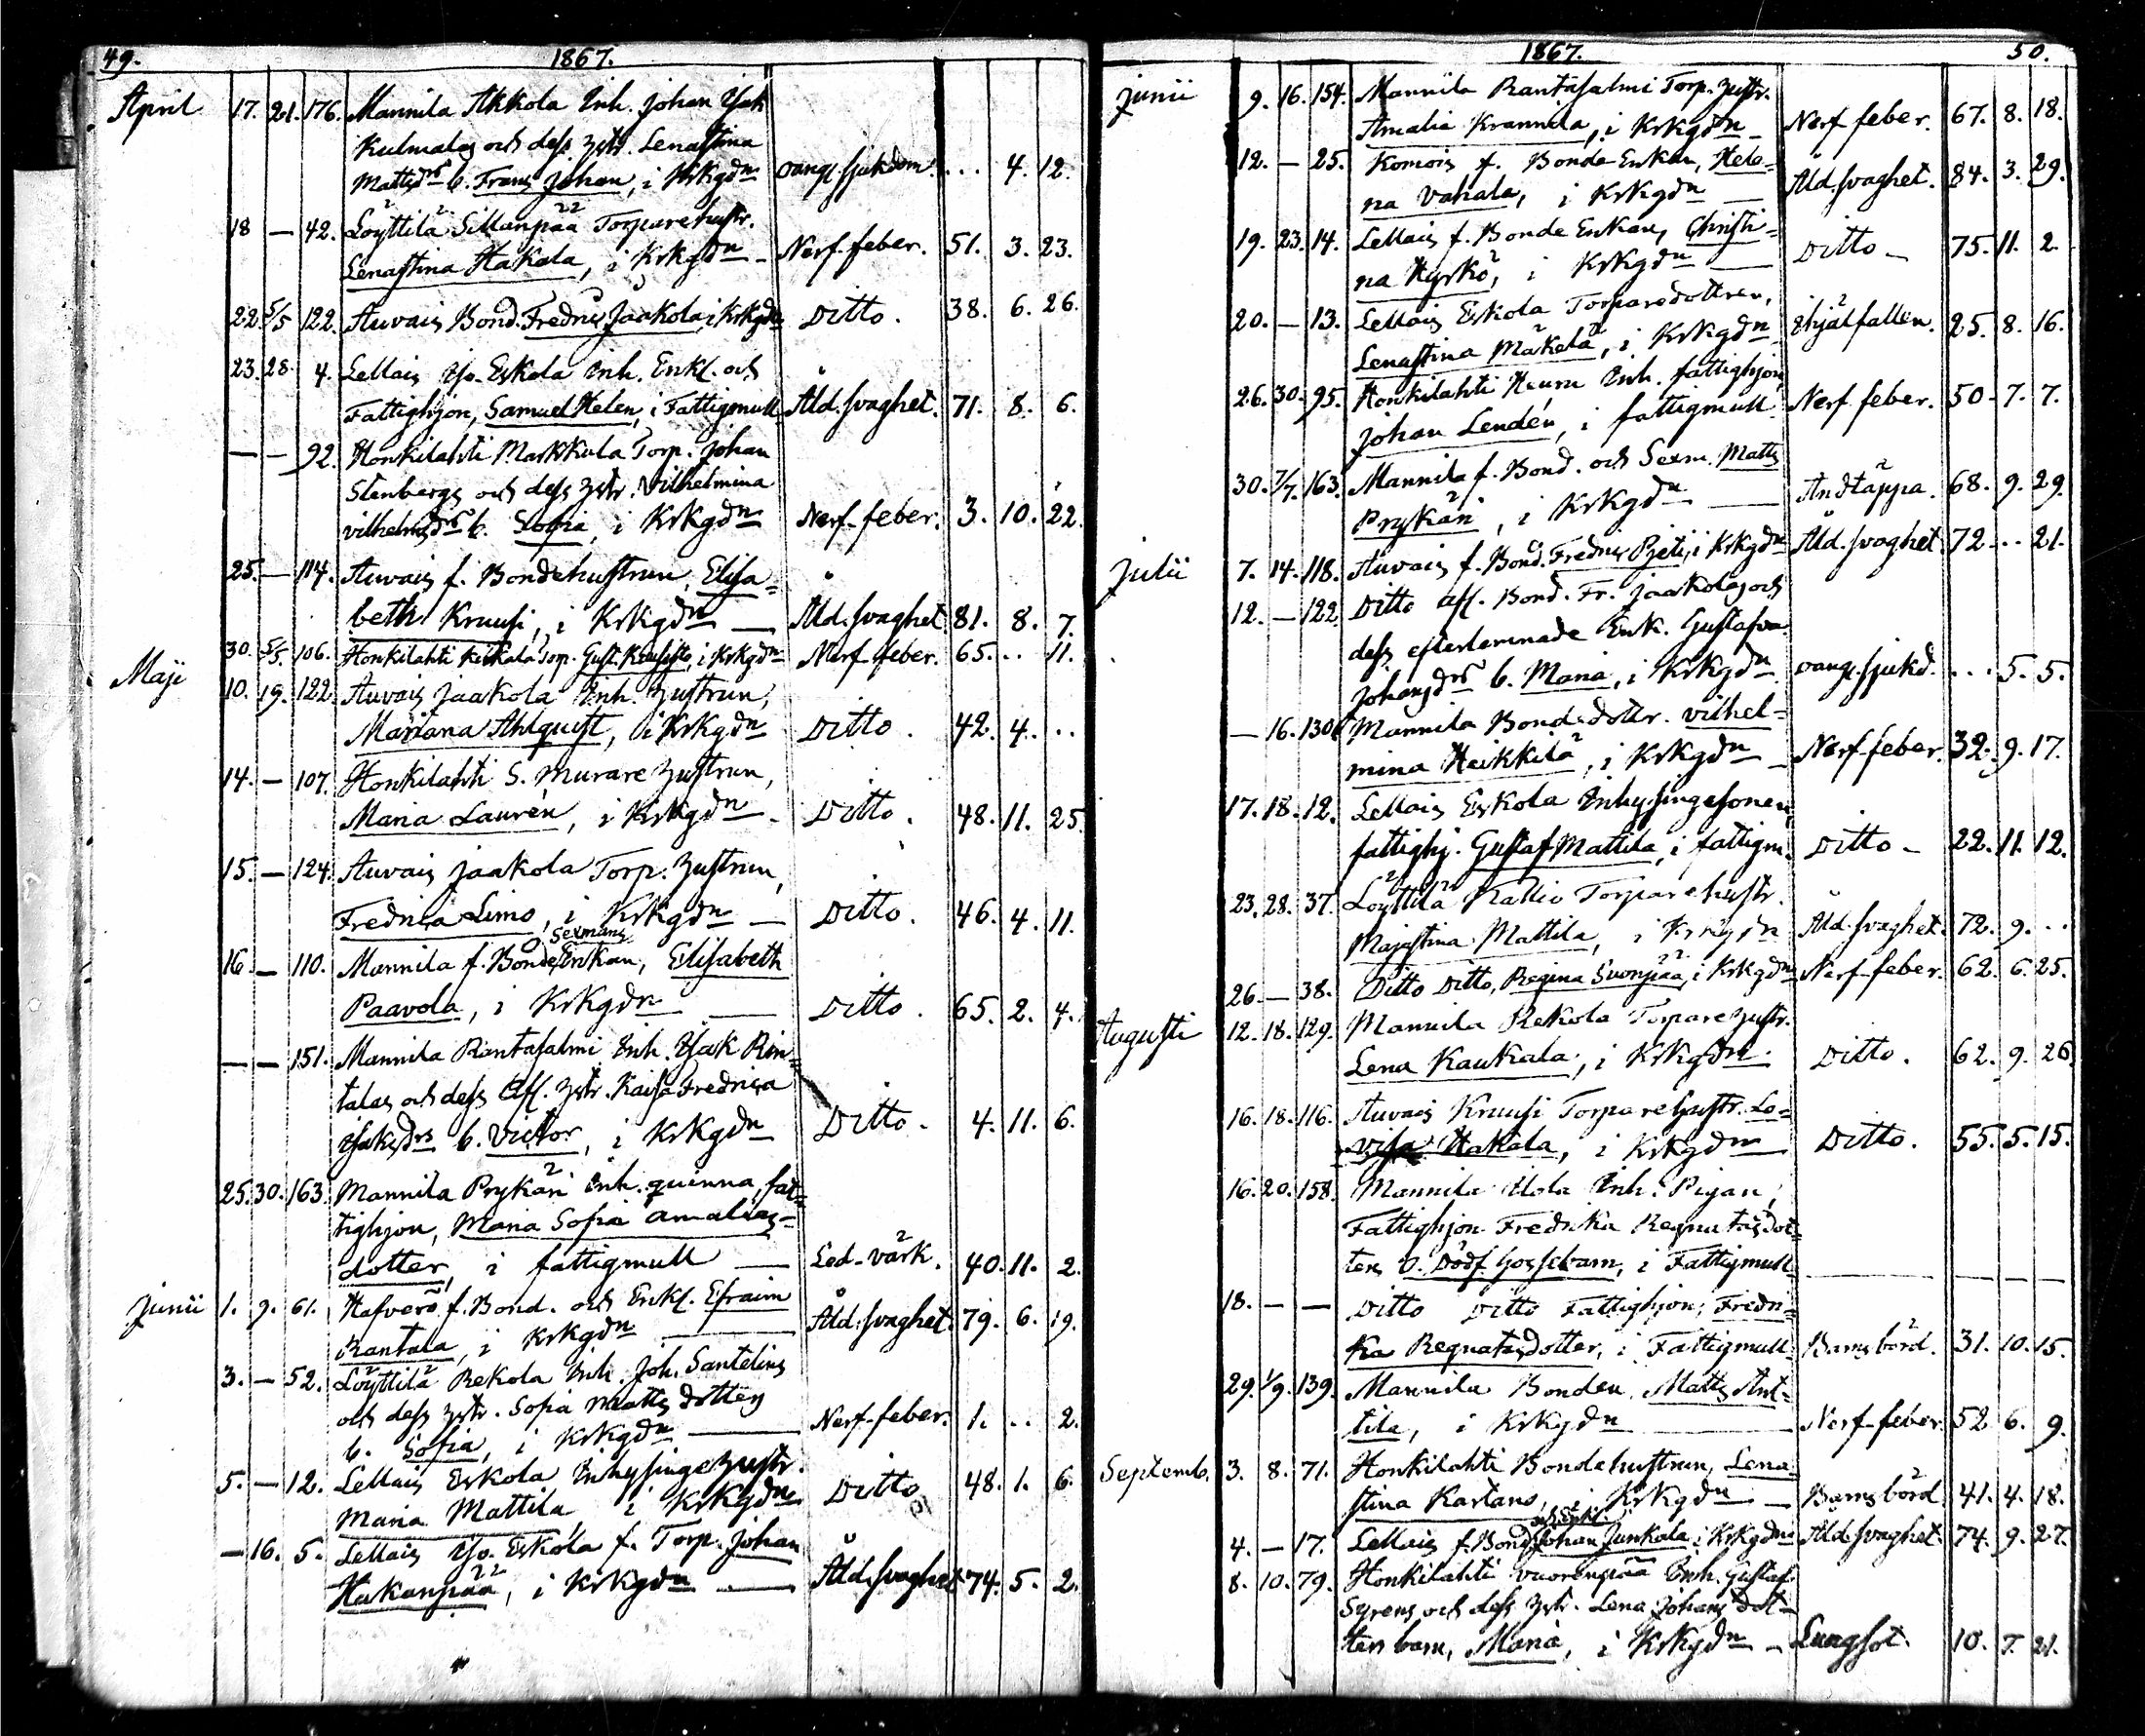 49. 1867.
April 17. 21. 176. Mannila Akkola Inh. Johan Isak
Kulmalas och dess hstr. Lenastina
Mattsdrs b. Frans Johan, i Krkgdn oangl. sjukdom. .. 4. 12.
18 — 42. Löyttilä Sillanpää Torparehustr.
Lenastina Hakala, i Krkgdn - Nerf-feber. 51. 3. 23.
22 5/5 122. Auvais Bond. Fredric Jaakola, i Krkgdn Ditto. 38. 6. 26.
23. 28. 4. Lellais Iso-Eskola Inh. Enkl. och
Fattighjon, Samuel Helen, i Fattigmull Åld. svaghet. 71. 8. 6.
— — 92. Honkilahti Markkula Torp. Johan
Stenbergs och dess hstr. Vilhelmina
Vilhelmsdrs b. Sofia, i Krkgdn Nerf-feber. 3. 10. 22.
25. — 114. Auvais f. Bondehustrun, Elisa=
beth Kruusi, i Krkgdn — Åld. svaghet. 81. 8. 7.
30. 5/5. 106. Honkilahti Torp. Gust. i Krkgdn Nerf-feber. 65. .. 11.
Maji 10. 19. 122. Auvais Jaakola Inh. hustrun,
Mariana Ahlquist, i Krkgdn Ditto. 42. 4. ..
14. — 107. Honkilahti S. Murare hustrun,
Maria Laurén, i Krkgdn - Ditto. 48. 11. 25.
15. — 124. Auvais Jaakola Torp. hustrun,
Fredrica Simo, i Krkgdn — Ditto. 46. 4. 11.
Sexmans
16. — 110. Mannila f. Bond. Enkan, Elisabeth
Paavola, i Krkgdn — Ditto. 65. 2. 4.
— — 151. Mannila Rantasalmi Inh. Isak Rin=
talas och dess Afl. hstr. Kaisa Fredrica
Isaksdrs b. Victor, i Krkgdn Ditto. 4. 11. 6.
25. 30. 163. Mannila Prykäri Inh. quinna, fat=
tighjon, Maria Sofia Amalias=
dotter, i fattigmull — Led-värk. 40. 11. 2.
Junii 1. 9. 61. Hafverö f. Bond. och Enkl. Efraim
Rantala, i Krkgdn — Åld. svaghet. 79. 6. 19.
3. — 52. Löyttilä Rekola Inh. Joh. Santelins
och dess hstr. Sofia Mattsdotters
b. Sofia, i Krkgdn — Nerf-feber. 1. .. 2.
5. — 12. Lellais Eskola Inhysinge hustr.
Maria Mattila, i Krkgdn Ditto 48. 1. 6.
— 16. 5. Lellais Iso-Eskola f. Torp. Johan
Hakanpää, i Krkgdn — Åld. svaghet 74. 5. 2.
1867. 50.
Junii 9. 16. 154. Mannila Rantasalmi Torp. hustr.
Amalia Krannila, i Krkgdn - Nerf feber. 67. 8. 18.
12. — 25. Komois f. Bonde Enkan, Hele=
na Vahala, i Krkgdn — Åld. svaghet. 84. 3. 29.
19. 23. 14. Lellais f. Bonde Enkan, Christi=
na Hyrkö, i Krkgdn — Ditto - 75. 11. 2.
20. — 13. Lellais Eskola Torparedottren,
Lenastina Mäkelä, i Krkgdn Ihjälfallen. 25. 8. 16.
26. 30. 95. Honkilahti Inh. fattighjon,
Johan Lendén, i fattigmull Nerf feber. 50. 7. 7.
30. 7/7. 163. Mannila f. Bond. och Sexm. Matts
Prykäri, i Krkgdn — Andtäppa. 68. 9. 29.
Julii 7. 14. 118. Auvais f. Bond. Fredric Pjeti, i Krkgdn Åld. svaghet 72 .. 21.
12. — 122 Ditto afl. Bond. Fr. Jaakolas och
dess efterlemnade Enk. Gustafva
Johansdrs b. Maria, i Krkgdn oangl. sjukd. .. 5. 5.
— 16. 130. Mannila Bondedottr. Vilhel=
mina Heikkilä, i Krkgdn - Nerf-feber. 32. 9. 17.
17. 18. 12. Lellais Eskola Inhysingesonen,
fattighj. Gustaf Mattila, i fattigm. Ditto - 22. 11. 12.
23. 28. 37. Löyttilä Kallio Torparehustr.
Majastina Mattila, i Krkgdn Åld. svaghet. 72. 9. ..
26. — 38. Ditto Ditto, Regina Suonpää, i Krkgdn Nerf-feber. 62. 6. 25.
Augusti 12. 18. 129. Mannila Rekola Torpare hustr.
Lena Kaukala, i Krkgdn. Ditto. 62. 9. 26
16. 18. 116. Auvais Kruusi Torpare hustr. Lo=
visa Hakala, i Krkgdn Ditto. 55. 5. 15.
16. 20. 158. Mannila Uola Inh. Pigan,
Fattighjon Fredrika Regnatasdot=
ters O. Dödf. gossebarn, i Fattigmull
18. — — Ditto Ditto Fattighjon, Fredri=
ka Regnatasdotter, i Fattigmull Barnsbörd. 31. 10. 15.
29. 1/9. 139. Mannila Bonden, Matts Ant=
tila, i Krkgdn — Nerf-feber 52 6. 9.
Septemb. 3. 8. 71. Honkilahti Bondehustrun, Lena=
stina Kartano, i Krkgdn — Barnsbörd 41. 4. 18.
och Enkl.
4. — 17. Lellais f. Bond. Johan Junkala, i Krkgdn Åld. svaghet. 74. 9. 27.
8. 10. 79. Honkilahti Vuorenpää Inh. Gustaf
Syrens och dess hstr. Lena Johans dot=
ters barn, Maria, i Krkgdn - Lungsot. 10. 7. 21.